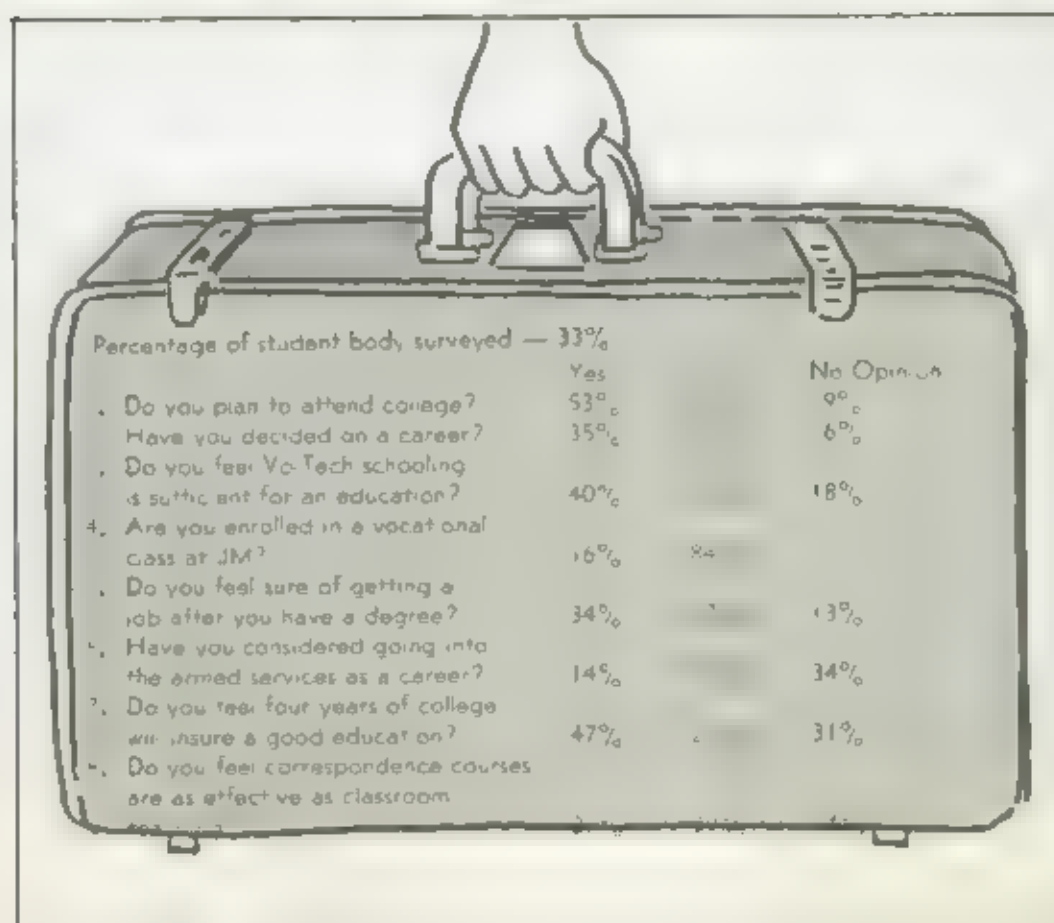 Percentage of student body surveyed — 33%
Yes No Opinion
Do you plan to attend college? 53% 9%
Have you decided on a career? 35% 6%
Do you feel Vo-Tech schooling
is sufficient for an education? 40% 18%
4. Are you enrolled in a vocational
class at JM? 16% 84
Do you feel sure of getting a
job after you have a degree? 34% 13%
Have you considered going into
the armed services as a career? 14% 34%
7. Do you feel four years of college
will insure a good education? 47% 31%
Do you feel correspondence courses
are as effective as classroom